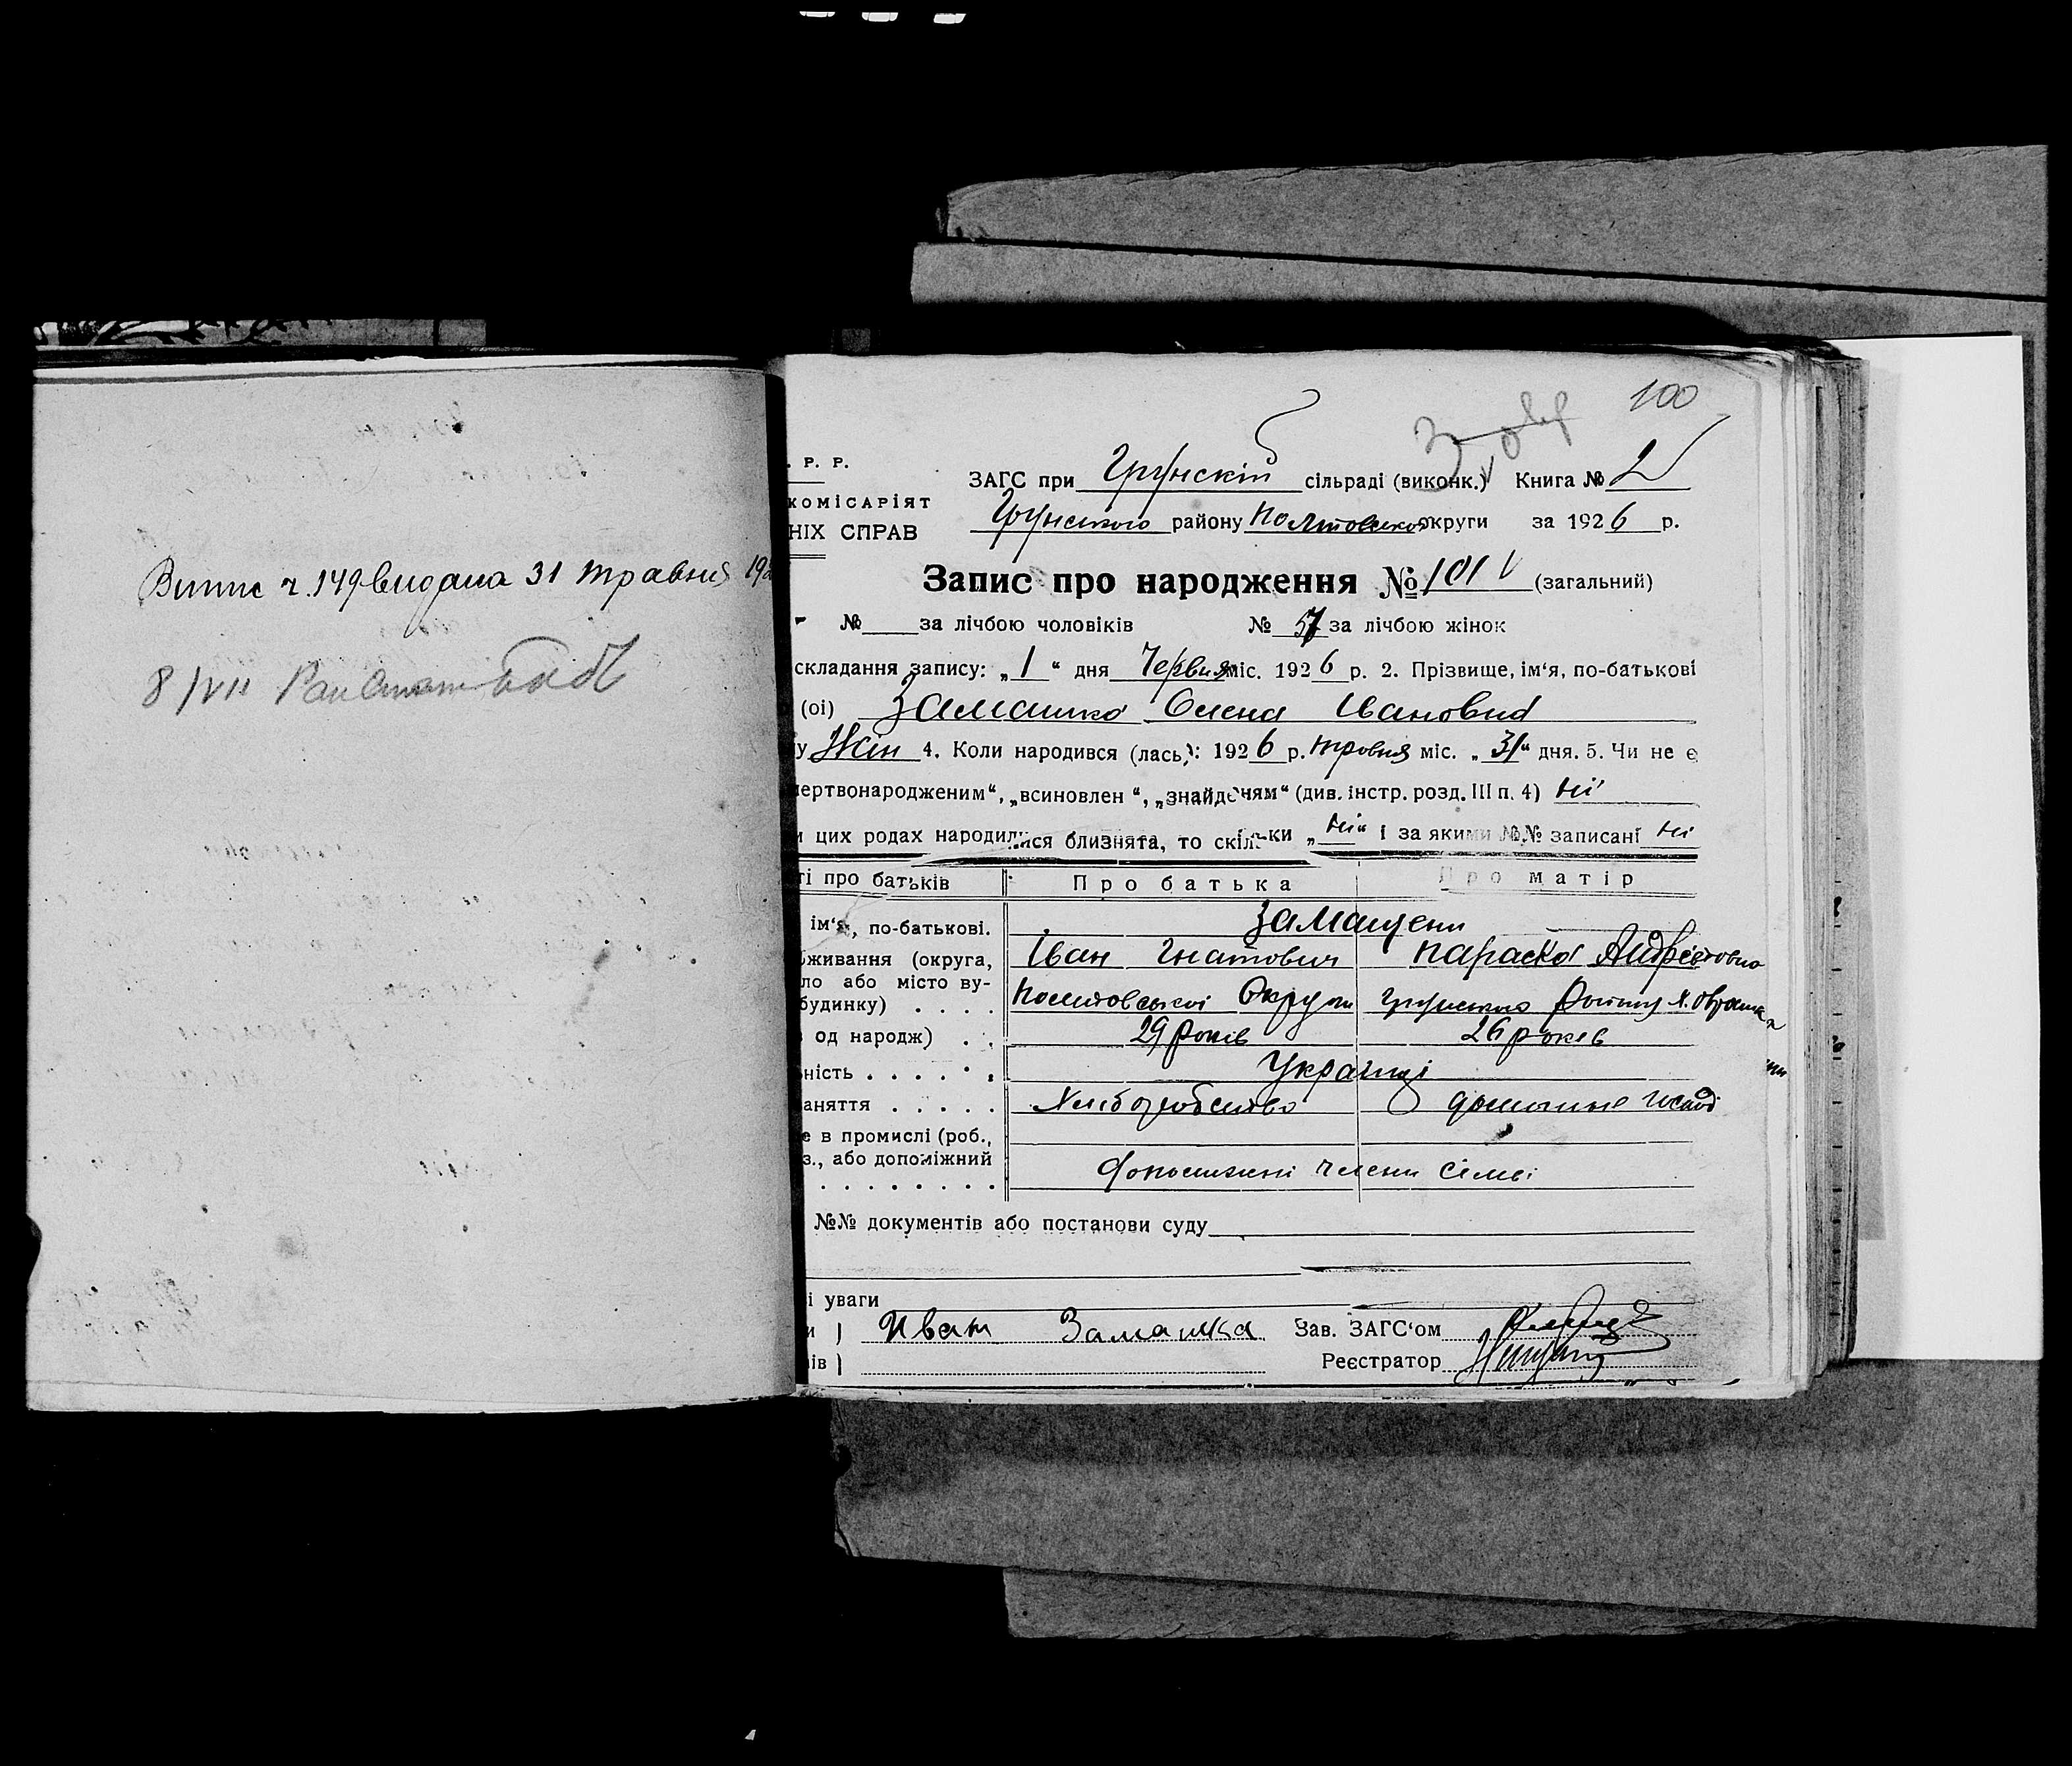 Випис ч. 149 видана 31 травня 192
8/VII
100
. Р. Р.
ЗАГС при Грунскій сільраді (виконк.) Книга № 2
КОМІСАРІЯТ
Грунського району Полтовської округи за 1926 р.
НІХ СПРАВ
Запис про народження № 101 (загальний)
№ за лічбою чоловіків № 57 за лічбою жінок
складання запису: „1“ дня Червня міс. 1926 р. 2. Прізвище, ім‘я, по-батькові
(ої) Замашко Олена Івановна
у Жін 4. Коли народився (лась): 1926 р. травня міс. „31“ дня. 5. Чи не є
мертвонародженим“, „всиновлен“, „знайденям“ (див. інстр. розд. III п. 4) ні
и цих родах народилися близнята, то скільки „ні“ і за якими №№ записані ні
ті про батьків Про батька Про матір
ім‘я, по-батькові. Замащени
Іван Гнатович Параска Андреєтовна
живання (округа,
ло або місто ву-
будинку) . . . . Полтовської Округи Грунського Району х.
од народж) . . 29 років 26 років
ність . . . . . . Українці
аняття . . . . . Хліборобство домашнє госпо
е в промислі (роб.,
з., або допоміжний
допоміжні члени сімьї
№№ документів або постанови суду
і уваги
и ) Иван Замашка Зав. ЗАГС‘ом
ів ) Реєстратор